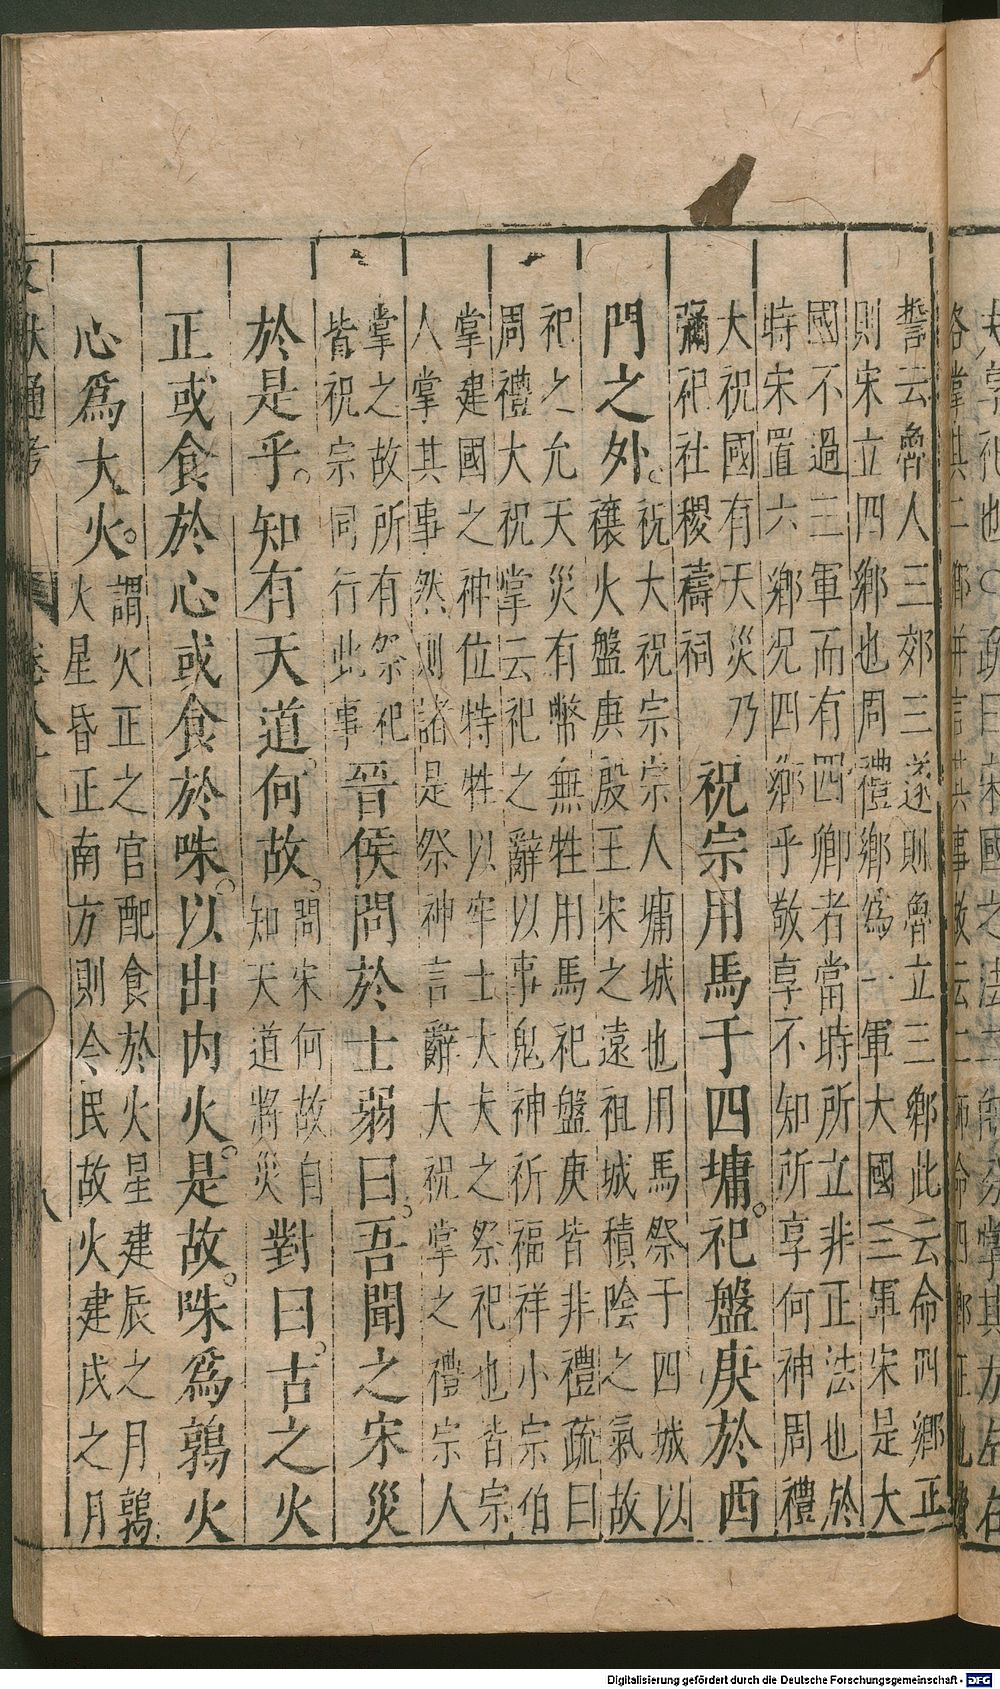 誓云魯人三郊三遂則魯立三鄉此云命四鄉正
則宋立四鄉也周禮鄉爲一軍大國三軍宋是大
國不過三軍而有四卿者當時所立非正法也於
時宋置六鄉况四鄉乎敬享不知所享何神周禮
大祝國有天災乃
彌祀社稷禱祠
祝宗用馬于四墉。祀盤庚於西
門之外。
祝大祝宗宗人墉城也用馬祭于四城以
禳火盤庚殷王宋之遠祖城積陰之氣故
祀之允天災有幣無牲用馬祀盤庚皆非禮疏曰
周禮大祝掌云祀之辭以事鬼神祈福祥小宗伯
掌建國之神位特牲以牢士大夫之祭祀也皆宗
人掌其事然則諸是祭神言辭大祝掌之禮宗人
掌之故所有祭祀
皆祝宗同行此事
晉侯問於士弱曰。吾聞之宋災
於是乎。知有天道。何故。
問宋何故自
知天道將災
對曰。古之火
正或食於心或食於咮。以出内火。是故。咮爲鶉火
心爲大火。
謂火正之官配食於火星建辰之月鶉
火星昏正南方則令民故火建戌之月
文獻通考 卷八十八 八
Digitalisierung gefördert durch die Deutsche Forschungsgemeinschaft - DFG